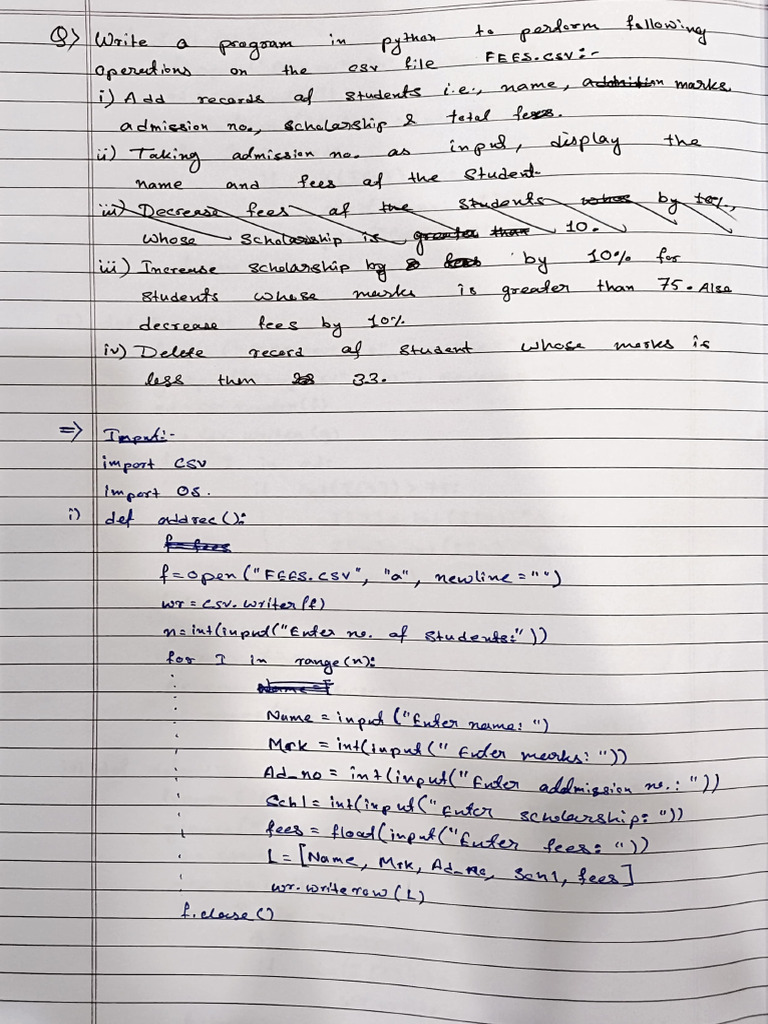 Q) Write a program in python to perform following
operations on the csv file FEES.CSV:-
i) Add records of students i.e., name, marks
admission no., scholarship & total fees.
ii) Taking admission no. as input, display the
name and fees of the student.
iii) Decrease fees of the students by 10%,
whose scholarship is greater than 10.
iii) Increase scholarship by 10% for
students whose marks is greater than 75. Also
decrease fees by 10%
iv) Delete record of student whose marks is
less then 33.
=> Input:-
import csv
import os.
i) def addrec():
f=fees
f=open("FEES.CSV", "a", newline="")
wr=csv.writer(f)
n=int(input("Enter no. of students:"))
for I in range(n):
Name = input ("Enter name: ")
Mrk = int(input(" Enter marks: "))
Ad_no = int(input("Enter addmission no.: "))
Schl = int(input("Enter scholarship: "))
fees = float(input("Enter fees: "))
L = [Name, Mrk, Ad_no, Schl, fees]
wr.writerow(L)
f.close()